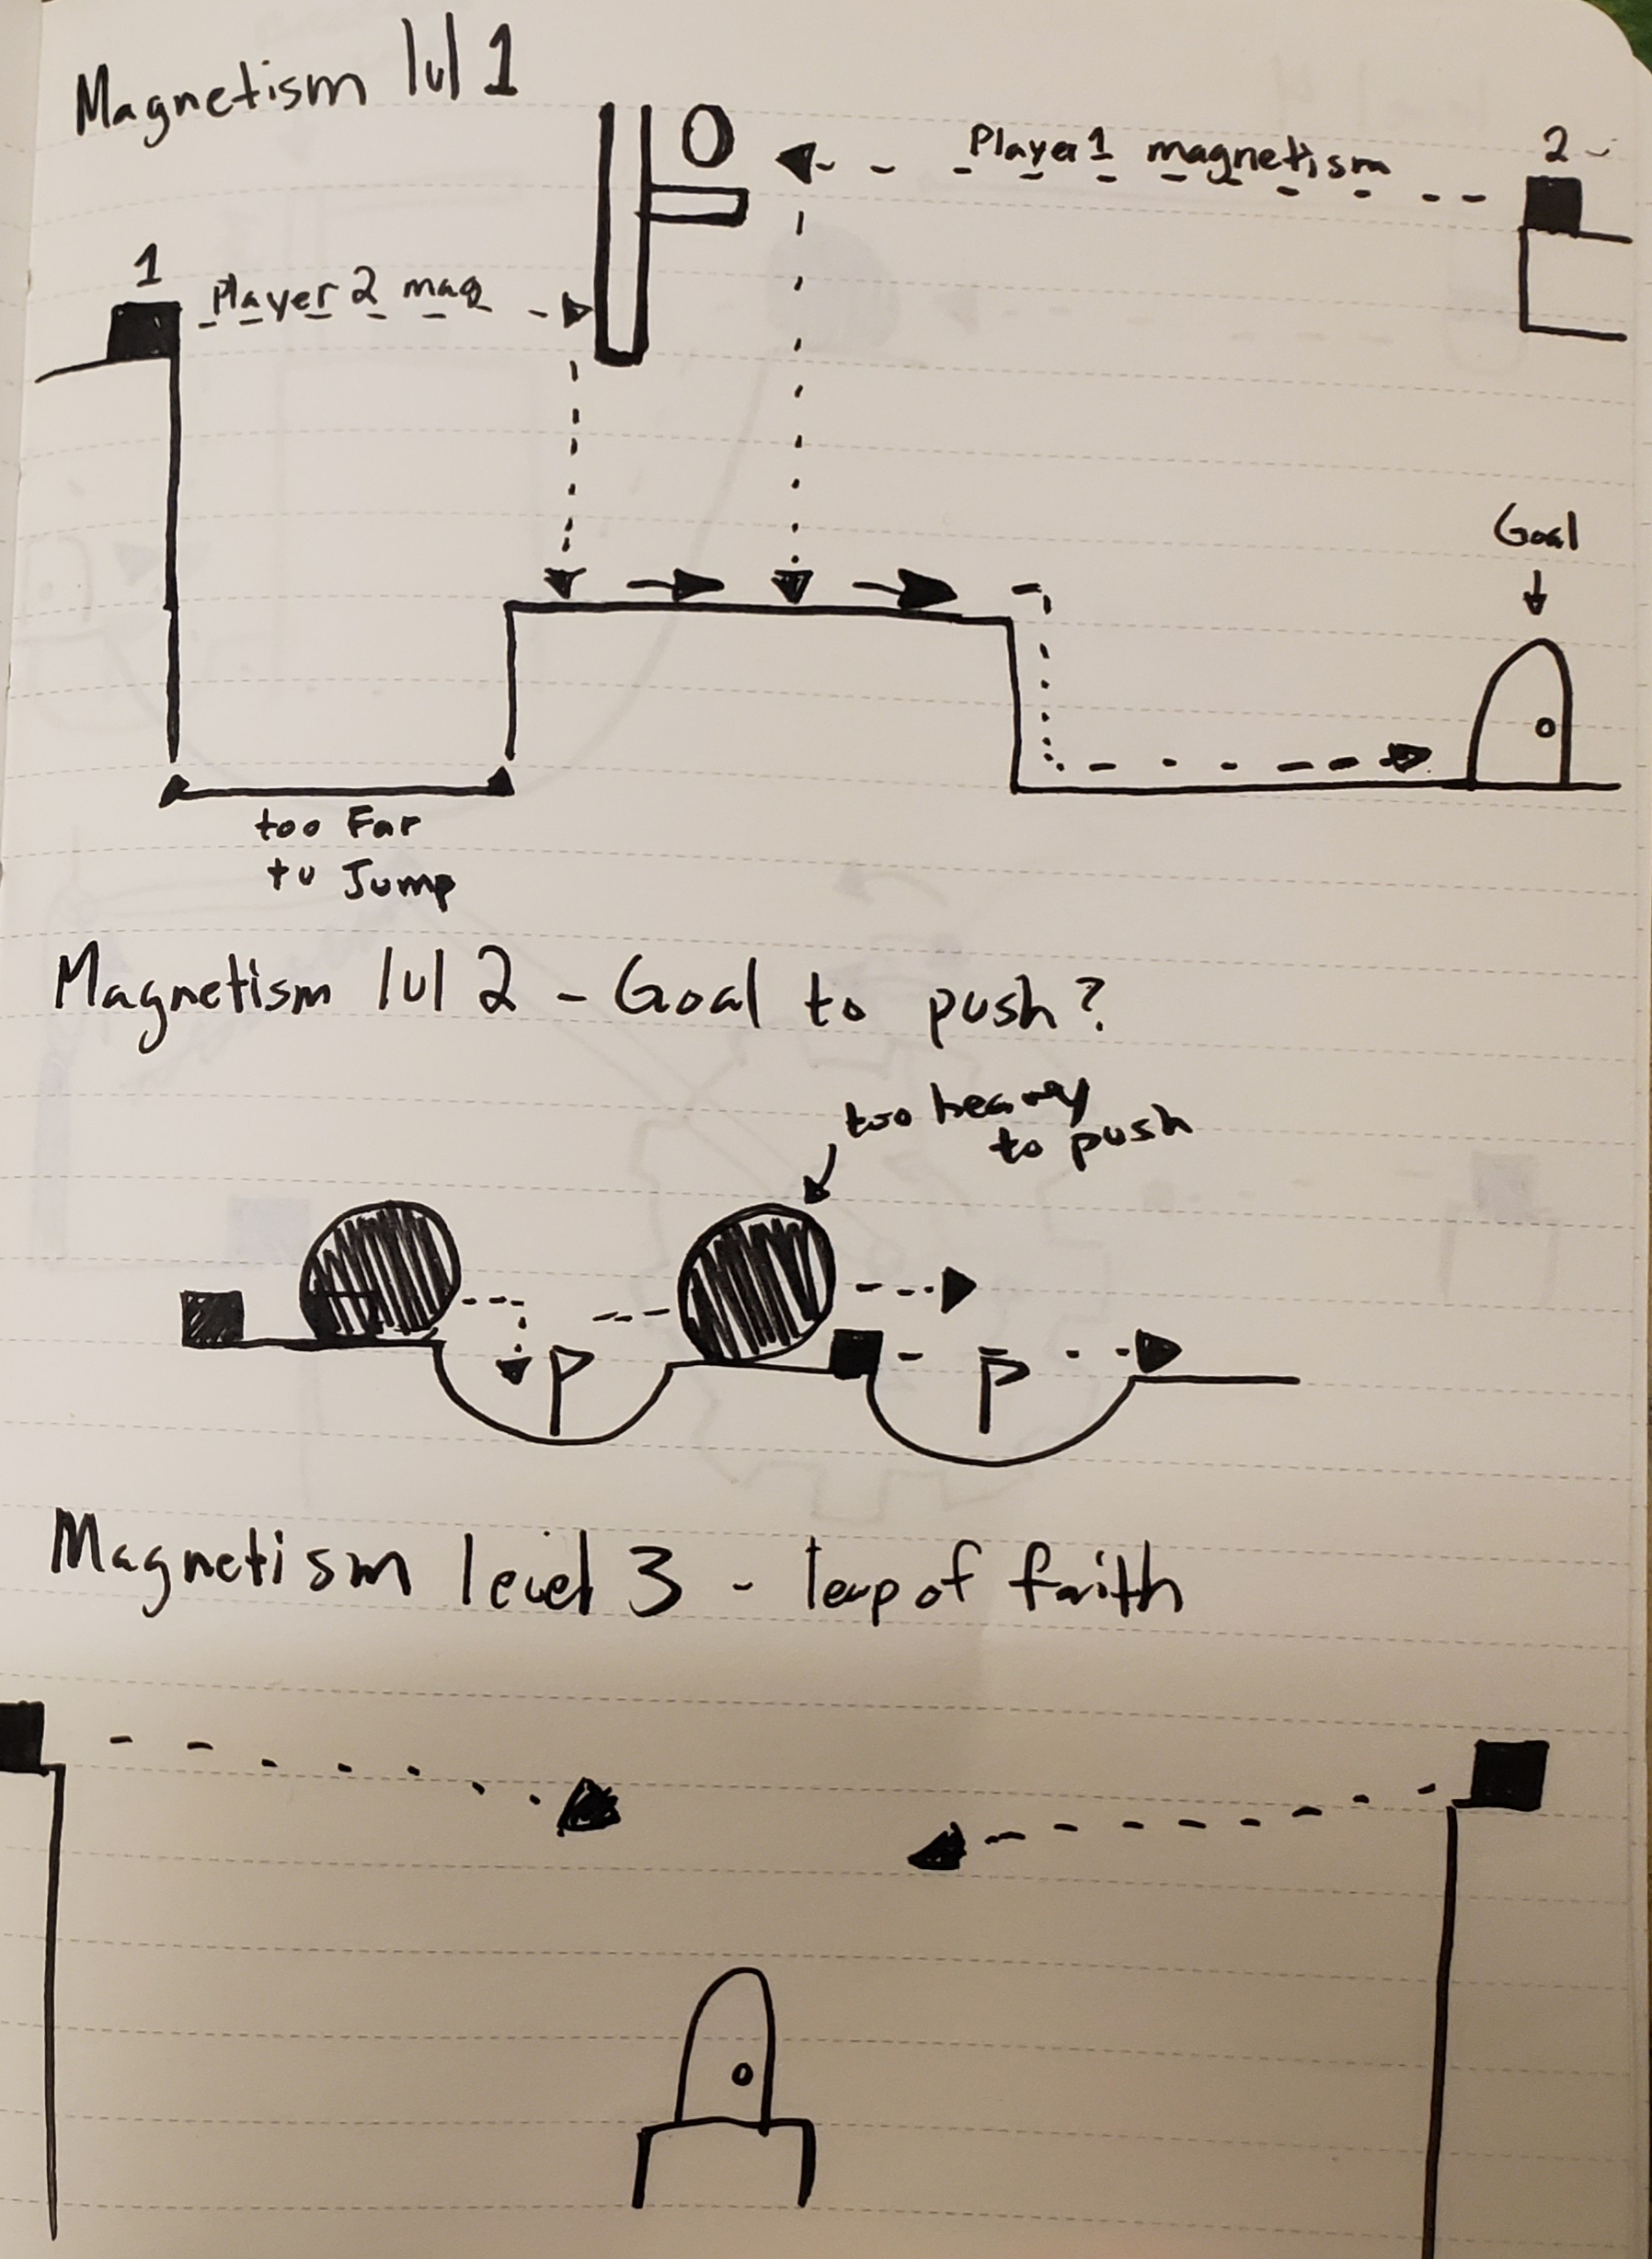 Magnetism lvl 1
O
Player 1 magnetism
2
1
Player 2 mag
Goal
too Far
to Jump
Magnetism lvl 2 - Goal to push?
too heavy
to push
P
P
Magnetism level 3 - leap of faith